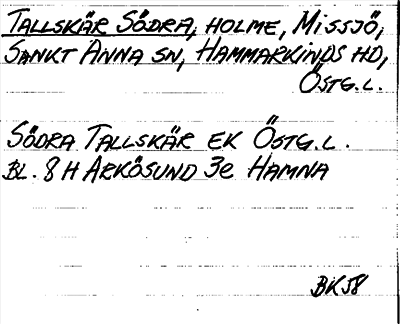 TALLSKÄR SÖDRA, HOLME, MISSJÖ,
SANKT ANNA SN, HAMMARKINDS HD,
ÖSTG.L.
SÖDRA TALLSKÄR EK ÖSTG.L.
BL. 8 H ARKÖSUND 3e HAMNA
BK58